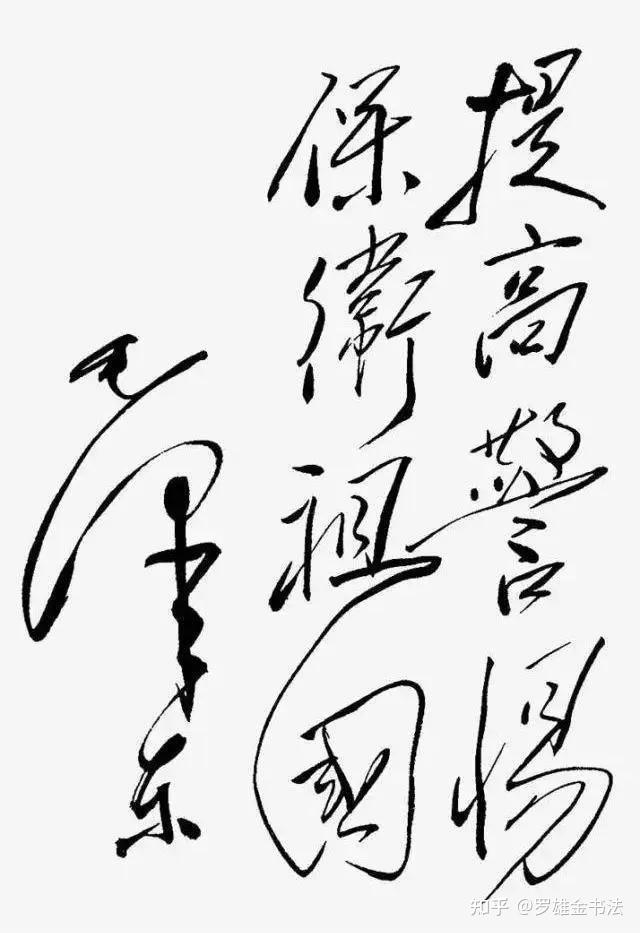 提高警惕
保衛祖國
毛澤东
知乎 @罗雄金书法